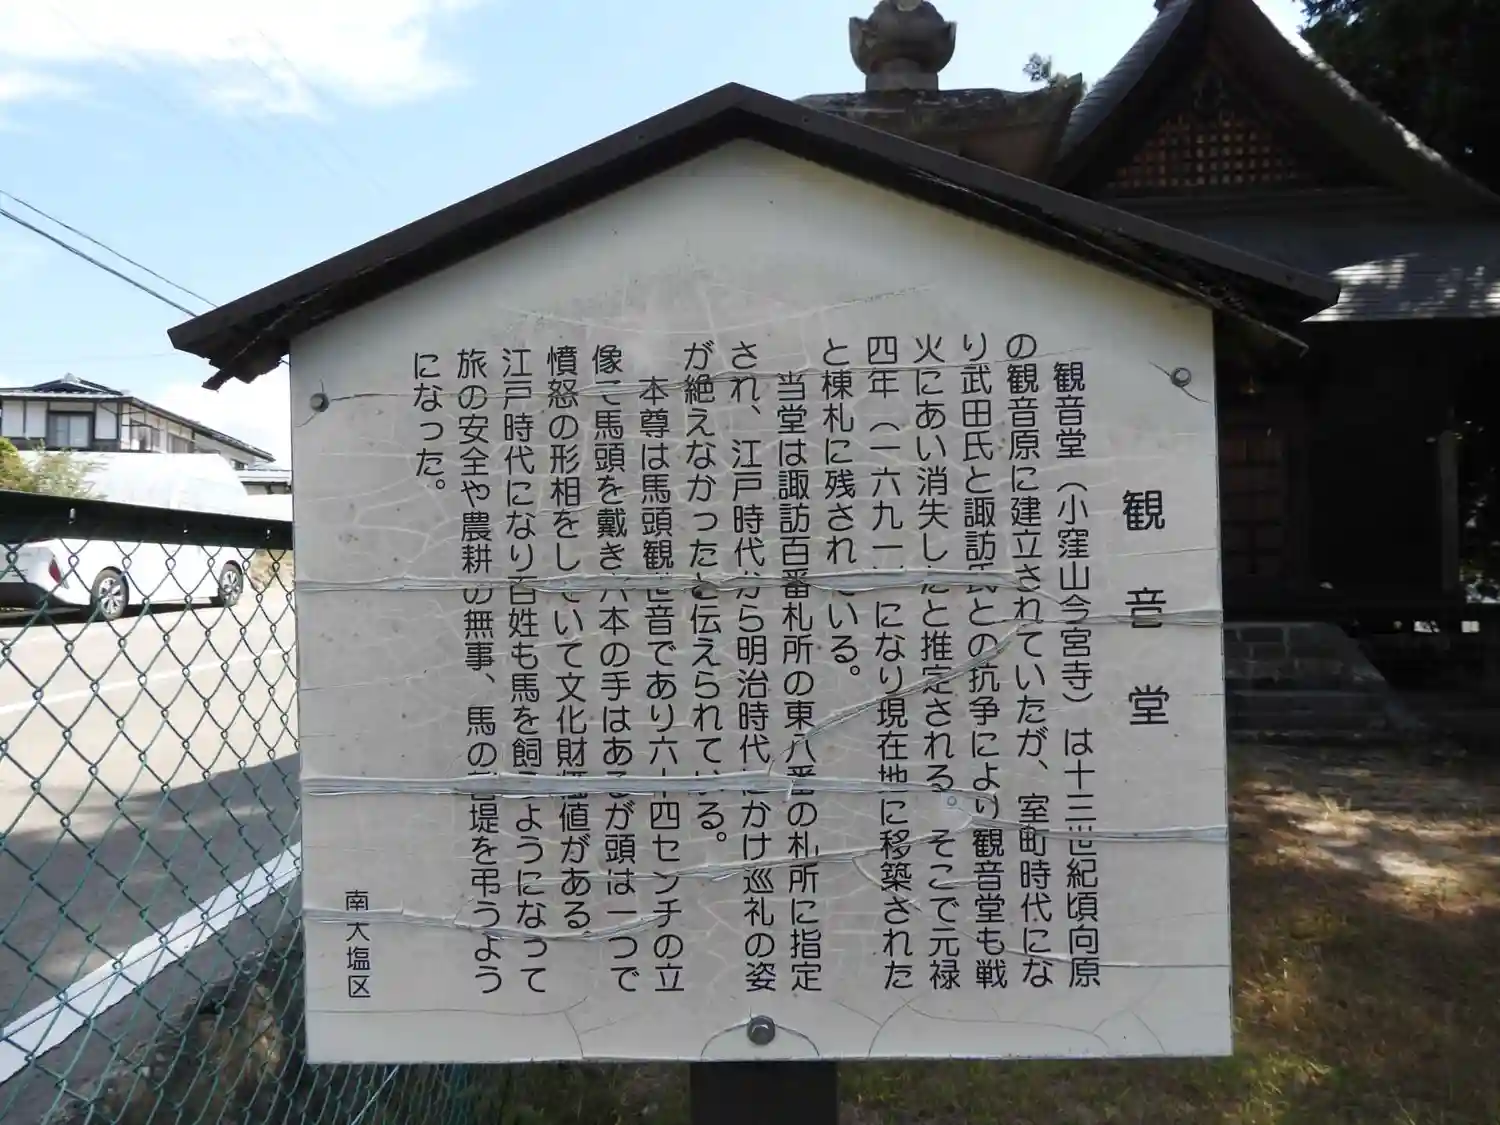 観音堂
観音堂（小窪山今宮寺）は十三世紀頃向原
の観音原に建立されていたが、室町時代にな
り武田氏と諏訪氏との抗争により観音堂も戦
火にあい消失したと推定される。そこで元禄
四年（一六九一）になり現在地に移築された
と棟札に残されている。
当堂は諏訪百番札所の東八番の札所に指定
され、江戸時代から明治時代にかけ巡礼の姿
が絶えなかったと伝えられている。
本尊は馬頭観世音であり六十四センチの立
像で馬頭を戴き六本の手はあるが頭は一つで
憤怒の形相をしていて文化財価値がある。
江戸時代になり百姓も馬を飼うようになって
旅の安全や農耕の無事、馬の菩堤を弔うよう
になった。
南大塩区